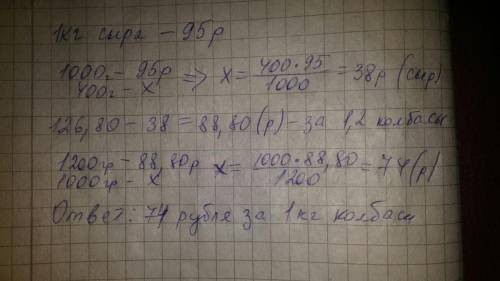 1кг сыра - 95р
1000г - 95р => x = 400*95/1000 = 38р (сыр)
400г - x
126,80 - 38 = 88,80(р) - за 1,2 колбасы
1200гр - 88,80р x = 1000*88,80/1200 = 74(р)
1000гр - x
Ответ: 74 рубля за 1кг колбасы